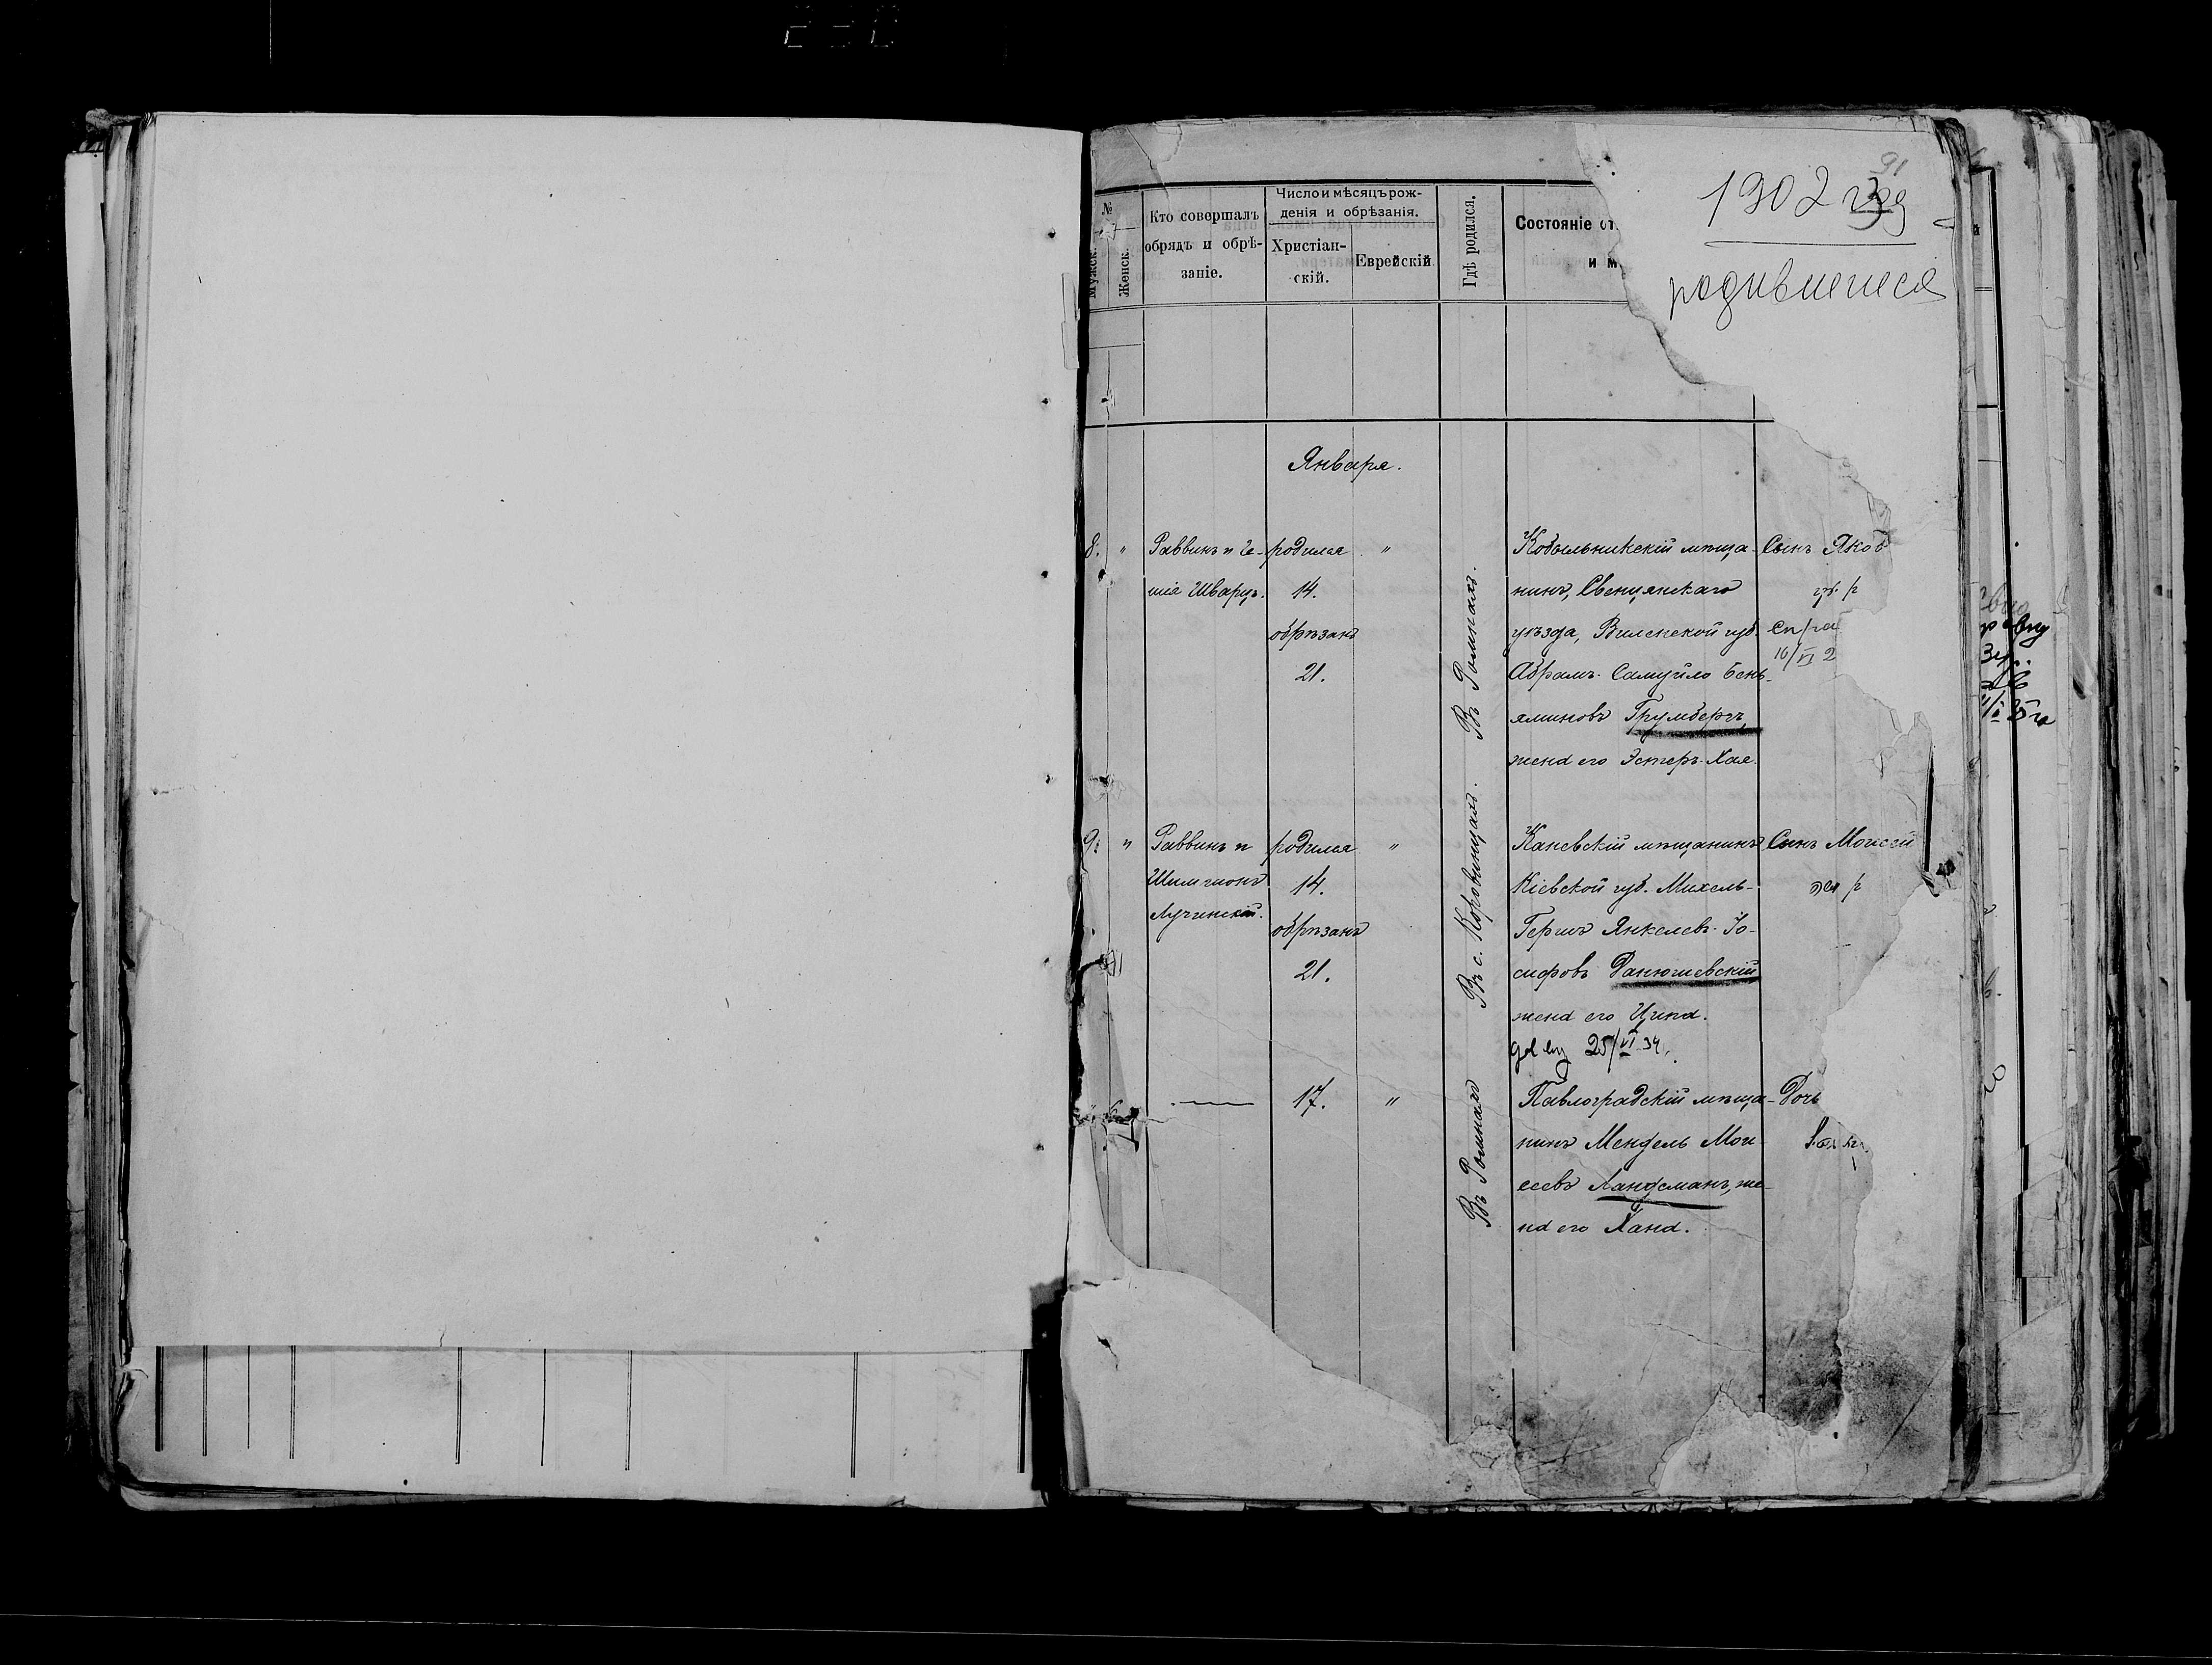 91
1902 год
родившегося
№
Мужск.
Женск.
Кто совершалъ
обрядъ и обрѣ-
заніе.
Число и мѣсяцъ рож-
денія и обрѣзанія.
Христіан-
скій.
Еврейскій
Гдѣ родился.
Состояніе от
и м
Января.
8.
"
Раввинъ и Ге-
шія Шварцъ.
родился
14.
обрѣзанъ
21.
"
Въ Ромнахъ.
Кобыльникскій мѣща-
нинъ, Свенцянскаго
уѣзда, Виленской губ.
Абрамъ-Самуйло Бень-
яминовъ Грумбергъ,
жена его Эстеръ-Хая.
Сынъ Яков
16/VI 2
9.
"
Раввинъ и
Шимшонъ
Лучинскій.
родился
14.
обрѣзанъ
21.
"
Въ с. Коровинцахъ.
Каневскій мѣщанинъ
Кіевской губ. Михель-
Гершъ Янкелевъ-Іо-
сифовъ Данюшевскій
жена его Ципа.
25/VI 34.
Сынъ Моисей
17.
"
Въ Ромнахъ
Павлоградскій мѣща-
нинъ Мендель Мои-
сеевъ Ландсманъ, же-
на его Хана.
Дочь